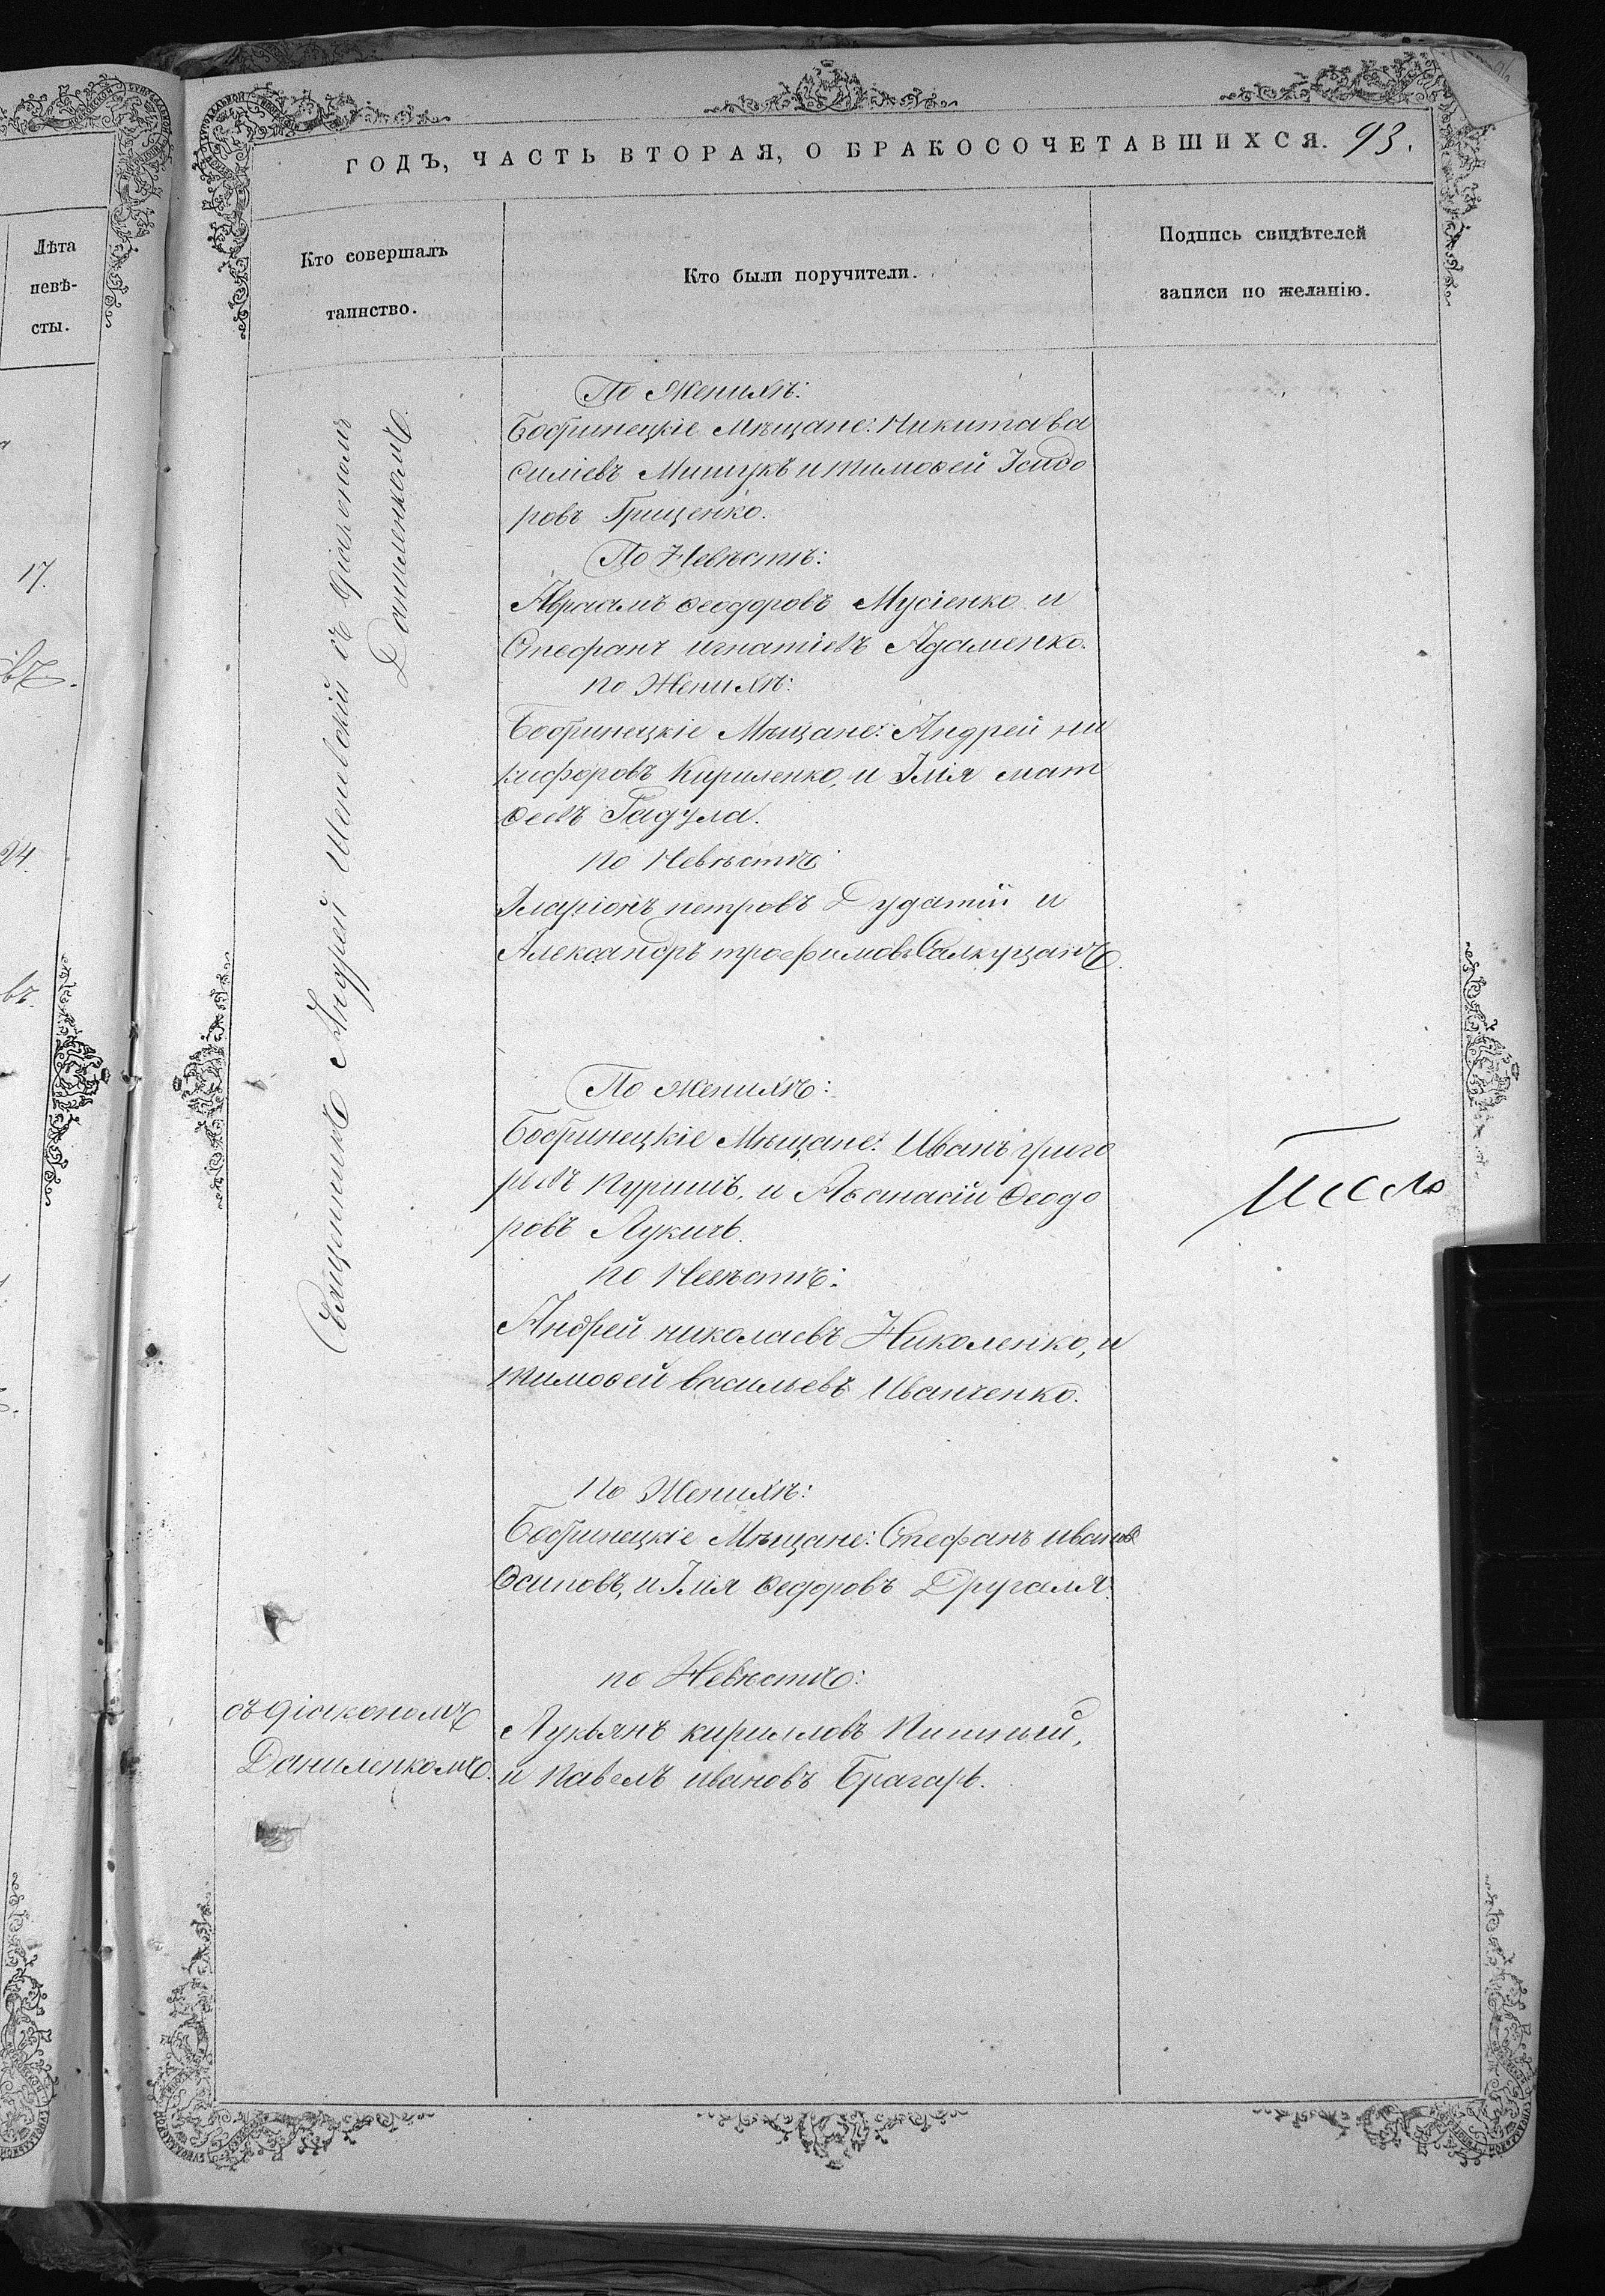 Лѣта
невѣ-
сты.
17.
24.
ГОДЪ, ЧАСТЬ ВТОРАЯ, О БРАКОСОЧЕТАВШИХСЯ. 93.
Кто совершалъ
таинство.
Кто были поручители.
Подпись свидѣтелей
записи по желанію.
Священникъ Андрей съ Діакономъ
Даниленкомъ.
По Женихѣ:
Бобринецкіе Мѣщане: Никита ва
силіевъ Мишукъ и тимоѳей Ісидо
ровъ Грищенко.
По Невѣстѣ:
Авраамъ ѳеодоровъ Мусіенко и
Стефанъ игнатіевъ Адаменко.
по Женихѣ:
Бобринецкіе Мѣщане: Андрей ни
кифоровъ Кириленко, и Ілія мат
ѳеевъ Гадула.
по Невѣстѣ
Іларіонъ петровъ Дудатій и
Александръ трофимовъ Салкуцанъ.
По Женихѣ:
Бобринецкіе Мѣщане: Иванъ григо
рьевъ Куришъ, и Аѳанасій Ѳеодо
ровъ Лукичъ.
по Невѣстѣ:
Андрей николаевъ Николенко, и
тимоѳей васильевъ Иванченко.
по Женихѣ:
Бобринецкіе Мѣщане: Стефанъ ивановъ
Осиповъ, и Ілія ѳедоровъ Другаля.
по Невѣстѣ:
съ діакономъ
Даниленкомъ.
Лукьянъ кирилловъ Пишный,
и Павелъ ивановъ Брагаръ.